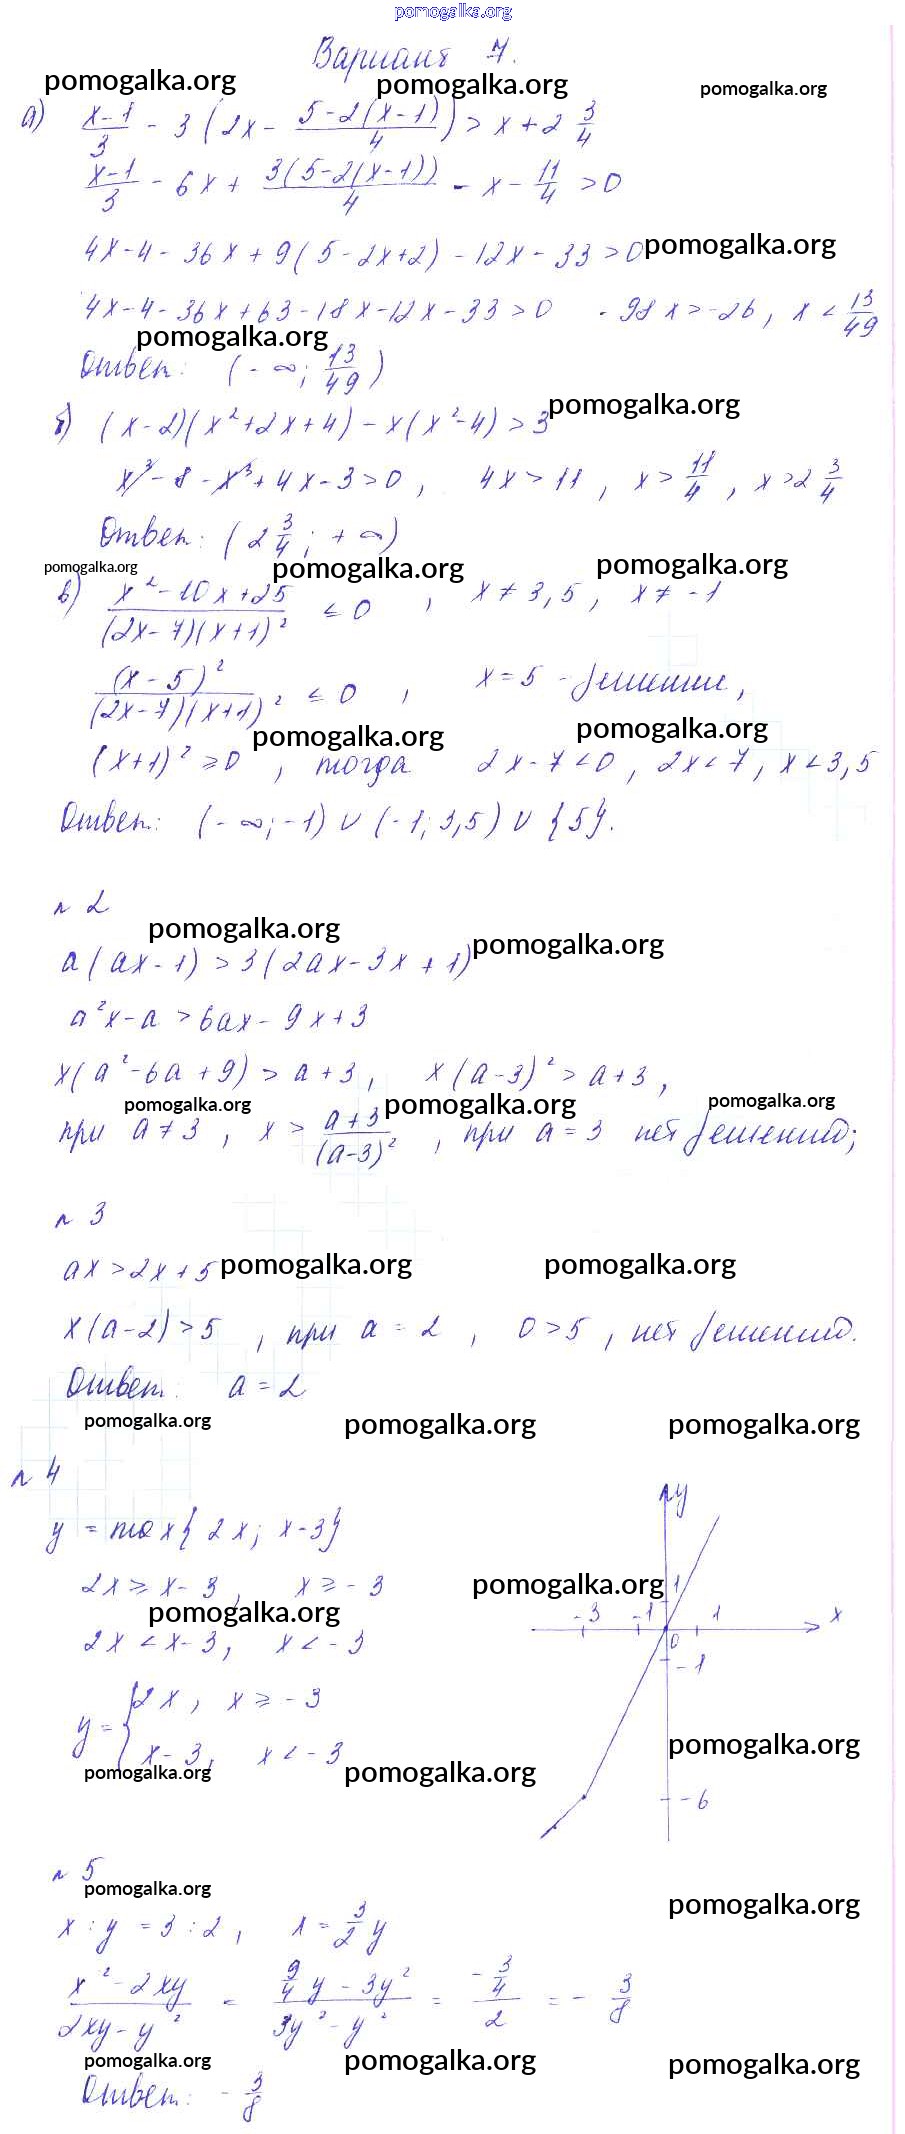 pomogalka.org
Вариант 7.
pomogalka.org pomogalka.org pomogalka.org
а) (x-1)/3 - 3 (2x - (5-2(x-1))/4) > x + 2 3/4
(x-1)/3 - 6x + 3(5-2(x-1))/4 - x - 11/4 > 0
4x-4-36x+9(5-2x+2)-12x-33>0 pomogalka.org
4x-4-36x+63-18x-12x-33>0 -98x>-26, x < 13/49
pomogalka.org
Ответ: (-∞; 13/49)
pomogalka.org
б) (x-2)(x²+2x+4)-x(x²-4)>3
x³-8-x³+4x-3>0, 4x>11, x > 11/4, x>2 3/4
Ответ: (2 3/4; +∞)
pomogalka.org pomogalka.org pomogalka.org
в) (x²-10x+25)/((2x-7)(x+1)²) ≤ 0, x≠3,5, x≠-1
(x-5)²/((2x-7)(x+1)²) ≤ 0, x=5 - решение,
pomogalka.org pomogalka.org
(x+1)² ≥ 0, тогда 2x-7<0, 2x<7, x<3,5
Ответ: (-∞;-1) ∪ (-1;3,5) ∪ {5}.
n 2
pomogalka.org pomogalka.org
a(ax-1)>3(2ax-3x+1)
a²x-a>6ax-9x+3
x(a²-6a+9)>a+3, x(a-3)²>a+3,
pomogalka.org pomogalka.org pomogalka.org
при a≠3, x > (a+3)/(a-3)², при a=3 нет решений;
n 3
ax>2x+5 pomogalka.org pomogalka.org
x(a-2)>5, при a=2, 0>5, нет решений.
Ответ: a=2
pomogalka.org pomogalka.org pomogalka.org
n 4
y
y = max{2x; x-3}
2x ≥ x-3, x ≥ -3
pomogalka.org 1
pomogalka.org -3 -1 1 x
2x < x-3, x < -3
0
-1
y = { 2x, x ≥ -3
x-3, x < -3
pomogalka.org
pomogalka.org pomogalka.org
-6
n 5
pomogalka.org pomogalka.org
x:y = 3:2, x = 3/2 y
(x²-2xy)/(2xy-y²) = (9/4 y - 3y²)/(3y²-y²) = (-3/4)/2 = -3/8
pomogalka.org pomogalka.org pomogalka.org
Ответ: -3/8